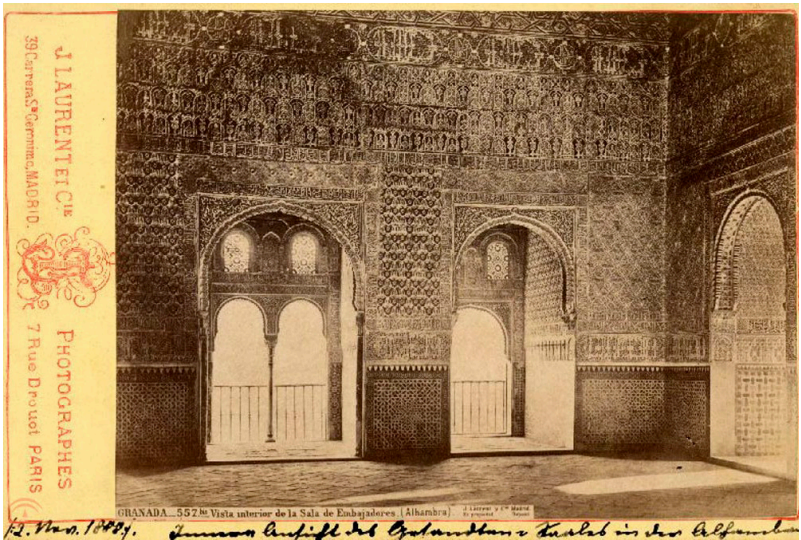 J. LAURENT ET CIE
39 Carrera Sn Geronimo, MADRID.
PHOTOGRAPHES
7 Rue Drouot PARIS
GRANADA _ 557 bis Vista interior de la Sala de Embajadores. (Alhambra)
J. Laurent y Cia Madrid.
Es propiedad. Déposé.
12. Nov. 1888. Innere Ansicht des Gesandten-Saales in der Alhambra